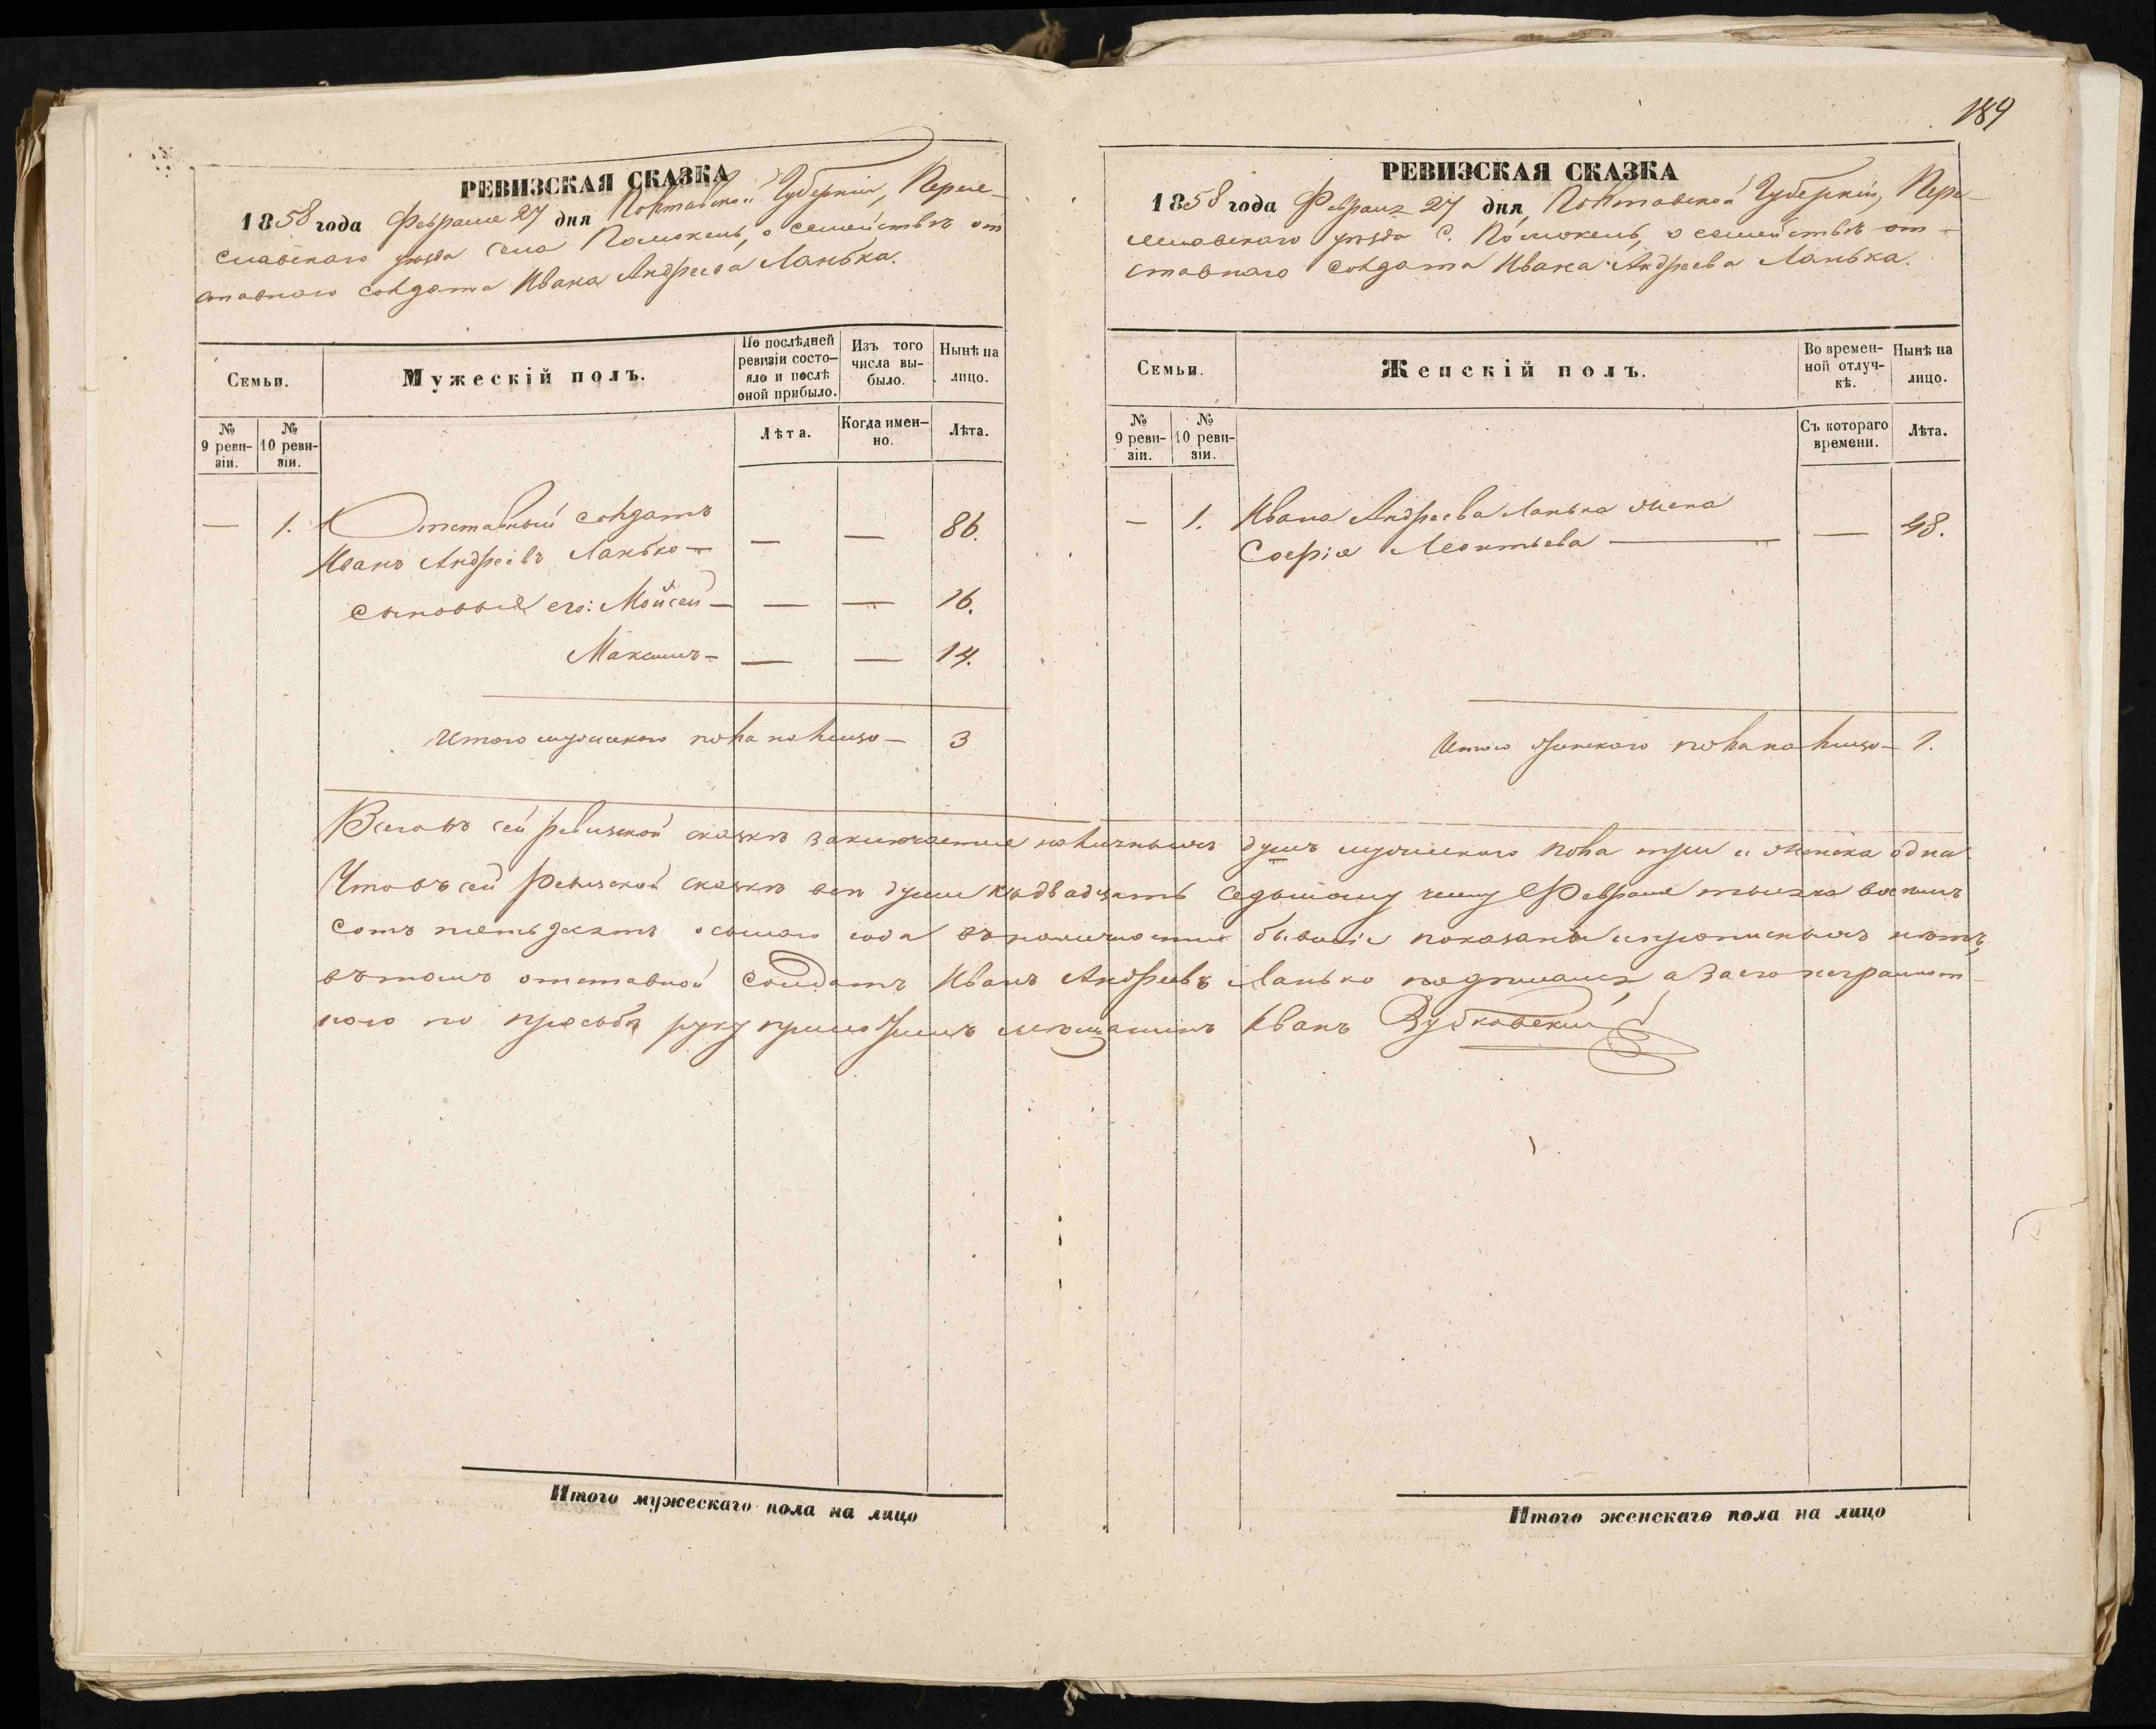 189
РЕВИЗСКАЯ СКАЗКА
1858 года Февраля 27 дня Полтавской Губерніи, Перея-
славскаго уѣзда села Помокель, о семействѣ от
ставнаго солдата Ивана Андреева Ланька.
Семьи.
Мужескій полъ.
По послѣдней
ревизіи состо-
яло и послѣ
оной прибыло.
Изъ того
числа вы-
было.
Нынѣ на
лицо.
№
9 реви-
зіи.
№
10 реви-
зіи.
Лѣта.
Когда имен-
но.
Лѣта.
— 1. Отставный солдатъ
Иванъ Андреевъ Ланько — — — 86.
Сыновья его: Мойсей — — — 16.
Максимъ — — — 14.
Итого мужескаго пола на лицо — 3
РЕВИЗСКАЯ СКАЗКА
1858 года Февраля 27 дня, Полтавской Губерніи, Пере-
яславскаго уѣзда С. Помокель, о семействѣ от-
ставнаго солдата Ивана Андреева Ланька.
Семьи.
Женскій полъ.
Во времен-
ной отлуч-
кѣ.
Нынѣ на
лицо.
№
9 реви-
зіи.
№
10 реви-
зіи.
Съ котораго
времени.
Лѣта.
— 1. Ивана Андреева Ланька жена
Софія Леонтьева — — 48.
Итого женскаго пола на лицо — 1.
Всего въ сей ревизской сказкѣ заключается наличныхъ душъ мужескаго пола три и женска одна
Что въ сей Ревизской сказкѣ всѣ души къ двадцать седьмому числу Февраля тысяча восемь
сотъ пятьдесятъ осьмаго года въ наличности бывшіе показаны и прописныхъ нѣтъ,
въ томъ отставной Солдатъ Иванъ Андреевъ Ланько подписался, а за его неграмот-
наго по просьбѣ руку приложилъ мѣщанинъ Иванъ Зубковскій
Итого мужескаго пола на лицо
Итого женскаго пола на лицо